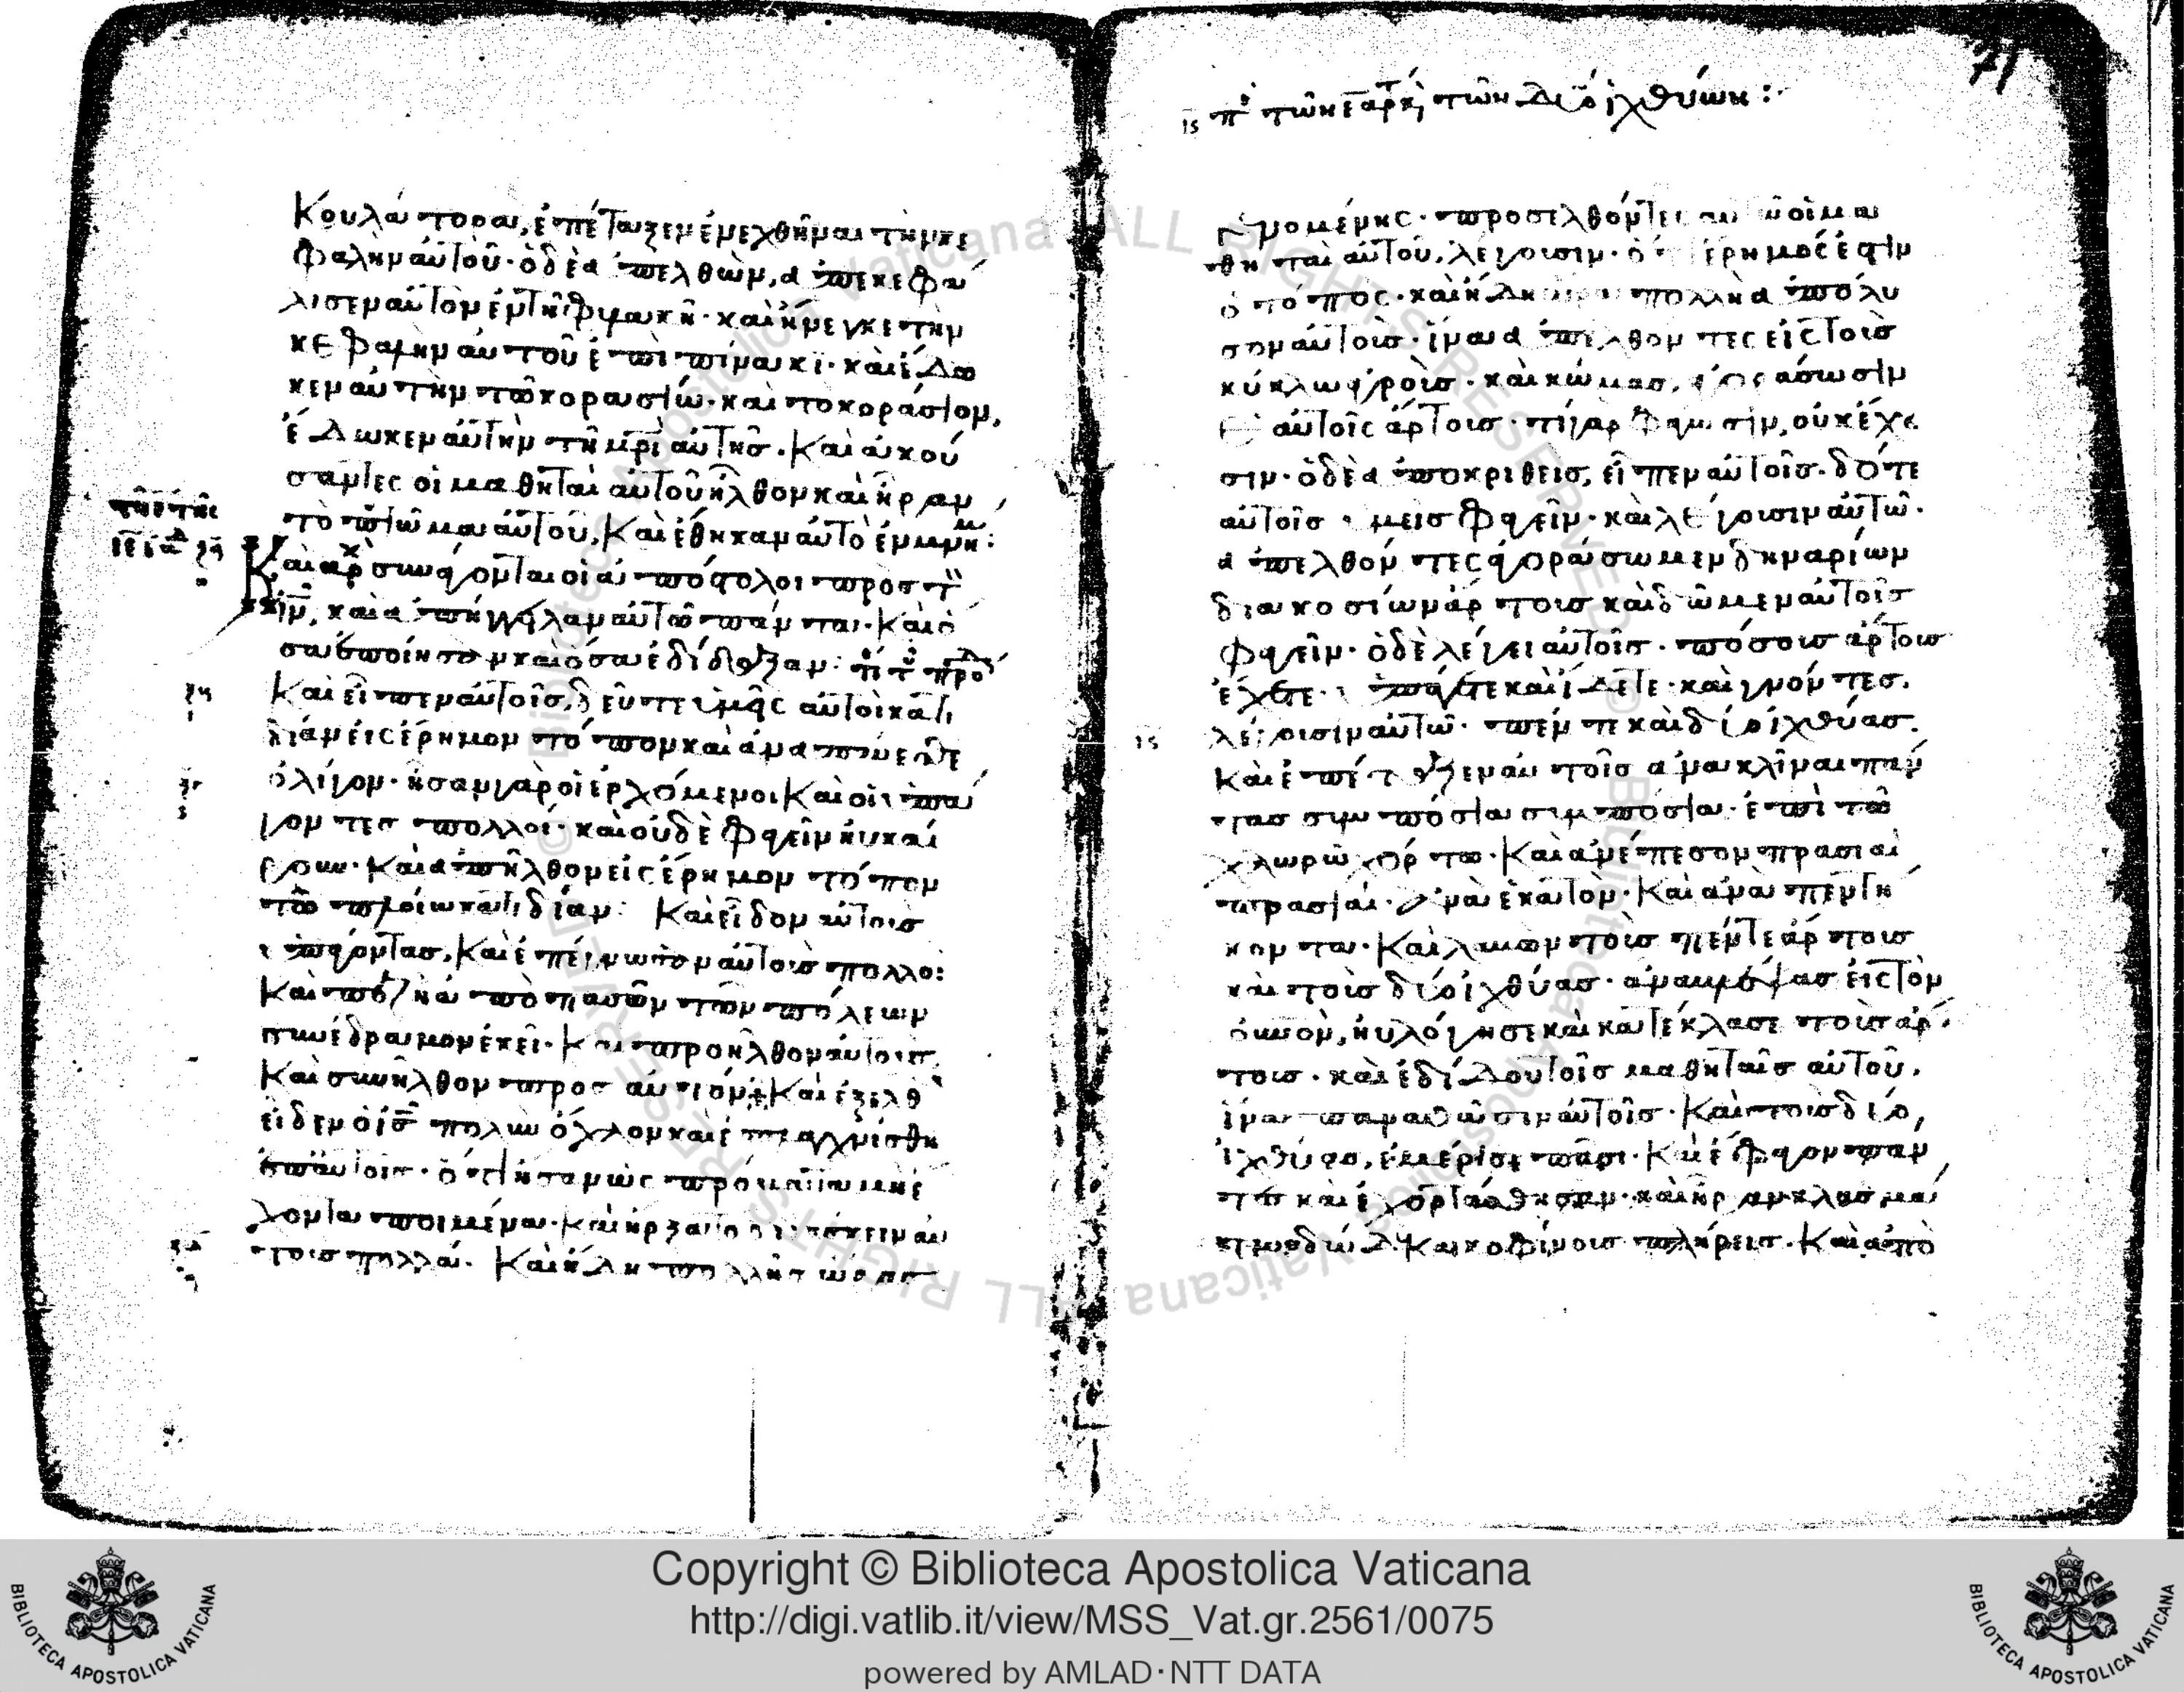 κουλάτορα, ἐπέταξεν ἐνεχθῆναι τὴν κε
φαλὴν αὐτοῦ· ὁ δὲ ἀπελθὼν, ἀπεκεφά
λισεν αὐτὸν ἐν τῆ φυλακῆ· καὶ ἤνεγκε τὴν
κεφαλὴν αὐτοῦ ἐπὶ πίνακι· καὶ ἔδω
κεν αὐτὴν τῶ κορασίω· καὶ τὸ κοράσιον,
ἔδωκεν αὐτὴν τῆ μρὶ αὐτῆς. Καὶ ἀκού
σαντες οἱ μαθηταὶ αὐτοῦ ἦλθον καὶ ἦραν
τὸ πτῶμα αὐτοῦ, καὶ ἔθηκαν αὐτὸ ἐν μνη:
Καὶ συνάγονται οἱ ἀπόστολοι πρὸς τὸν
ιν, καὶ ἀπήγγειλαν αὐτῶ πάντα· καὶ ὅ
σα ἐποίησαν καὶ ὅσα ἐδίδαξαν:
Καὶ εἶπεν αὐτοῖς, δεῦτε ὑμεῖς αὐτοὶ κατι
δίαν εἰς ἔρημον τόπον καὶ ἀναπαύεσθε
ὀλίγον· ἦσαν γὰρ οἱ ἐρχόμενοι καὶ οἱ ὑπά
γοντες πολλοί· καὶ οὐδὲ φαγεῖν ηὐκαί
ρουν· Καὶ ἀπῆλθον εἰς ἔρημον τόπον
τῶ πλοίω κατιδίαν: Καὶ εἶδον αὐτοὺς
ὑπάγοντας, καὶ ἐπέγνωσαν αὐτοὺς πολλοί:
Καὶ πεζῆ ἀπὸ πασῶν τῶν πόλεων
συνέδραμον ἐκεῖ· καὶ προῆλθον αὐτοὺς
καὶ συνῆλθον πρὸς αὐτόν: Καὶ ἐξελθ
εἶδεν ὁ ις πολὺν ὄχλον καὶ ἐσπλαγχνίσθη
ἐπαὐτοῖς· ὅτι ἦσαν ὡς πρόβατα μὴ ἔ
χοντα ποιμένα· καὶ ἤρξατο διδάσκειν αὐ
τοὺς πολλά. Καὶ ἤδη πολλῆς ὥρας
71
ις π τῶν ε ἄρτ καὶ τῶν δύο ἰχθύων:
γενομένης· προσελθόντες αὐτῶ οἱ μα
θηταὶ αὐτοῦ, λέγουσιν· ὅτι ἔρημός ἐστιν
ὁ τόπος· καὶ ἤδη ὥρα πολλὴ ἀπόλυ
σον αὐτούς· ἵνα ἀπελθόντες εἰς τοὺς
κύκλω ἀγροὺς· καὶ κώμας, ἀγοράσωσιν
ἑαυτοῖς ἄρτους· τί γὰρ φάγωσιν, οὐκ ἔχου
σιν· ὁ δὲ ἀποκριθεὶς, εἶπεν αὐτοῖς· δότε
αὐτοῖς ὑμεῖς φαγεῖν· καὶ λέγουσιν αὐτῶ·
ἀπελθόντες ἀγοράσωμεν δηναρίων
διακοσίων ἄρτους καὶ δῶμεν αὐτοῖς
φαγεῖν· ὁ δὲ λέγει αὐτοῖς· πόσους ἄρτους
ἔχετε· ὑπάγετε καὶ ἴδετε· καὶ γνόντες.
λέγουσιν αὐτῶ· πέντε καὶ δύο ἰχθύας.
ις
Καὶ ἐπέταξεν αὐτοῖς ἀνακλῖναι πάν
τας συμπόσια συμπόσια· ἐπὶ τῶ
χλωρῶ χόρτω· Καὶ ἀνέπεσον πρασιαὶ
πρασιαί· ἀνὰ ἑκατόν· Καὶ ἀνὰ πεντή
κοντα· Καὶ λαβὼν τοὺς πέντε ἄρτους
καὶ τοὺς δύο ἰχθύας· ἀναβλέψας εἰς τὸν
οὐνον, ηὐλόγησε καὶ κατέκλασε τοὺς ἄρ
τους· καὶ ἐδίδου τοῖς μαθηταῖς αὐτοῦ,
ἵνα παραθῶσιν αὐτοῖς· Καὶ τοὺς δύο,
ἰχθύας, ἐμέρισε πᾶσι· Καὶ ἔφαγον πάν
τες καὶ ἐχορτάσθησαν· καὶ ἦραν κλασμά
των δώδεκα κοφίνους πλήρεις. Καὶ ἀπὸ
Copyright © Biblioteca Apostolica Vaticana
http://digi.vatlib.it/view/MSS_Vat.gr.2561/0075
powered by AMLAD·NTT DATA
BIBLIOTECA APOSTOLICA VATICANA
BIBLIOTECA APOSTOLICA VATICANA